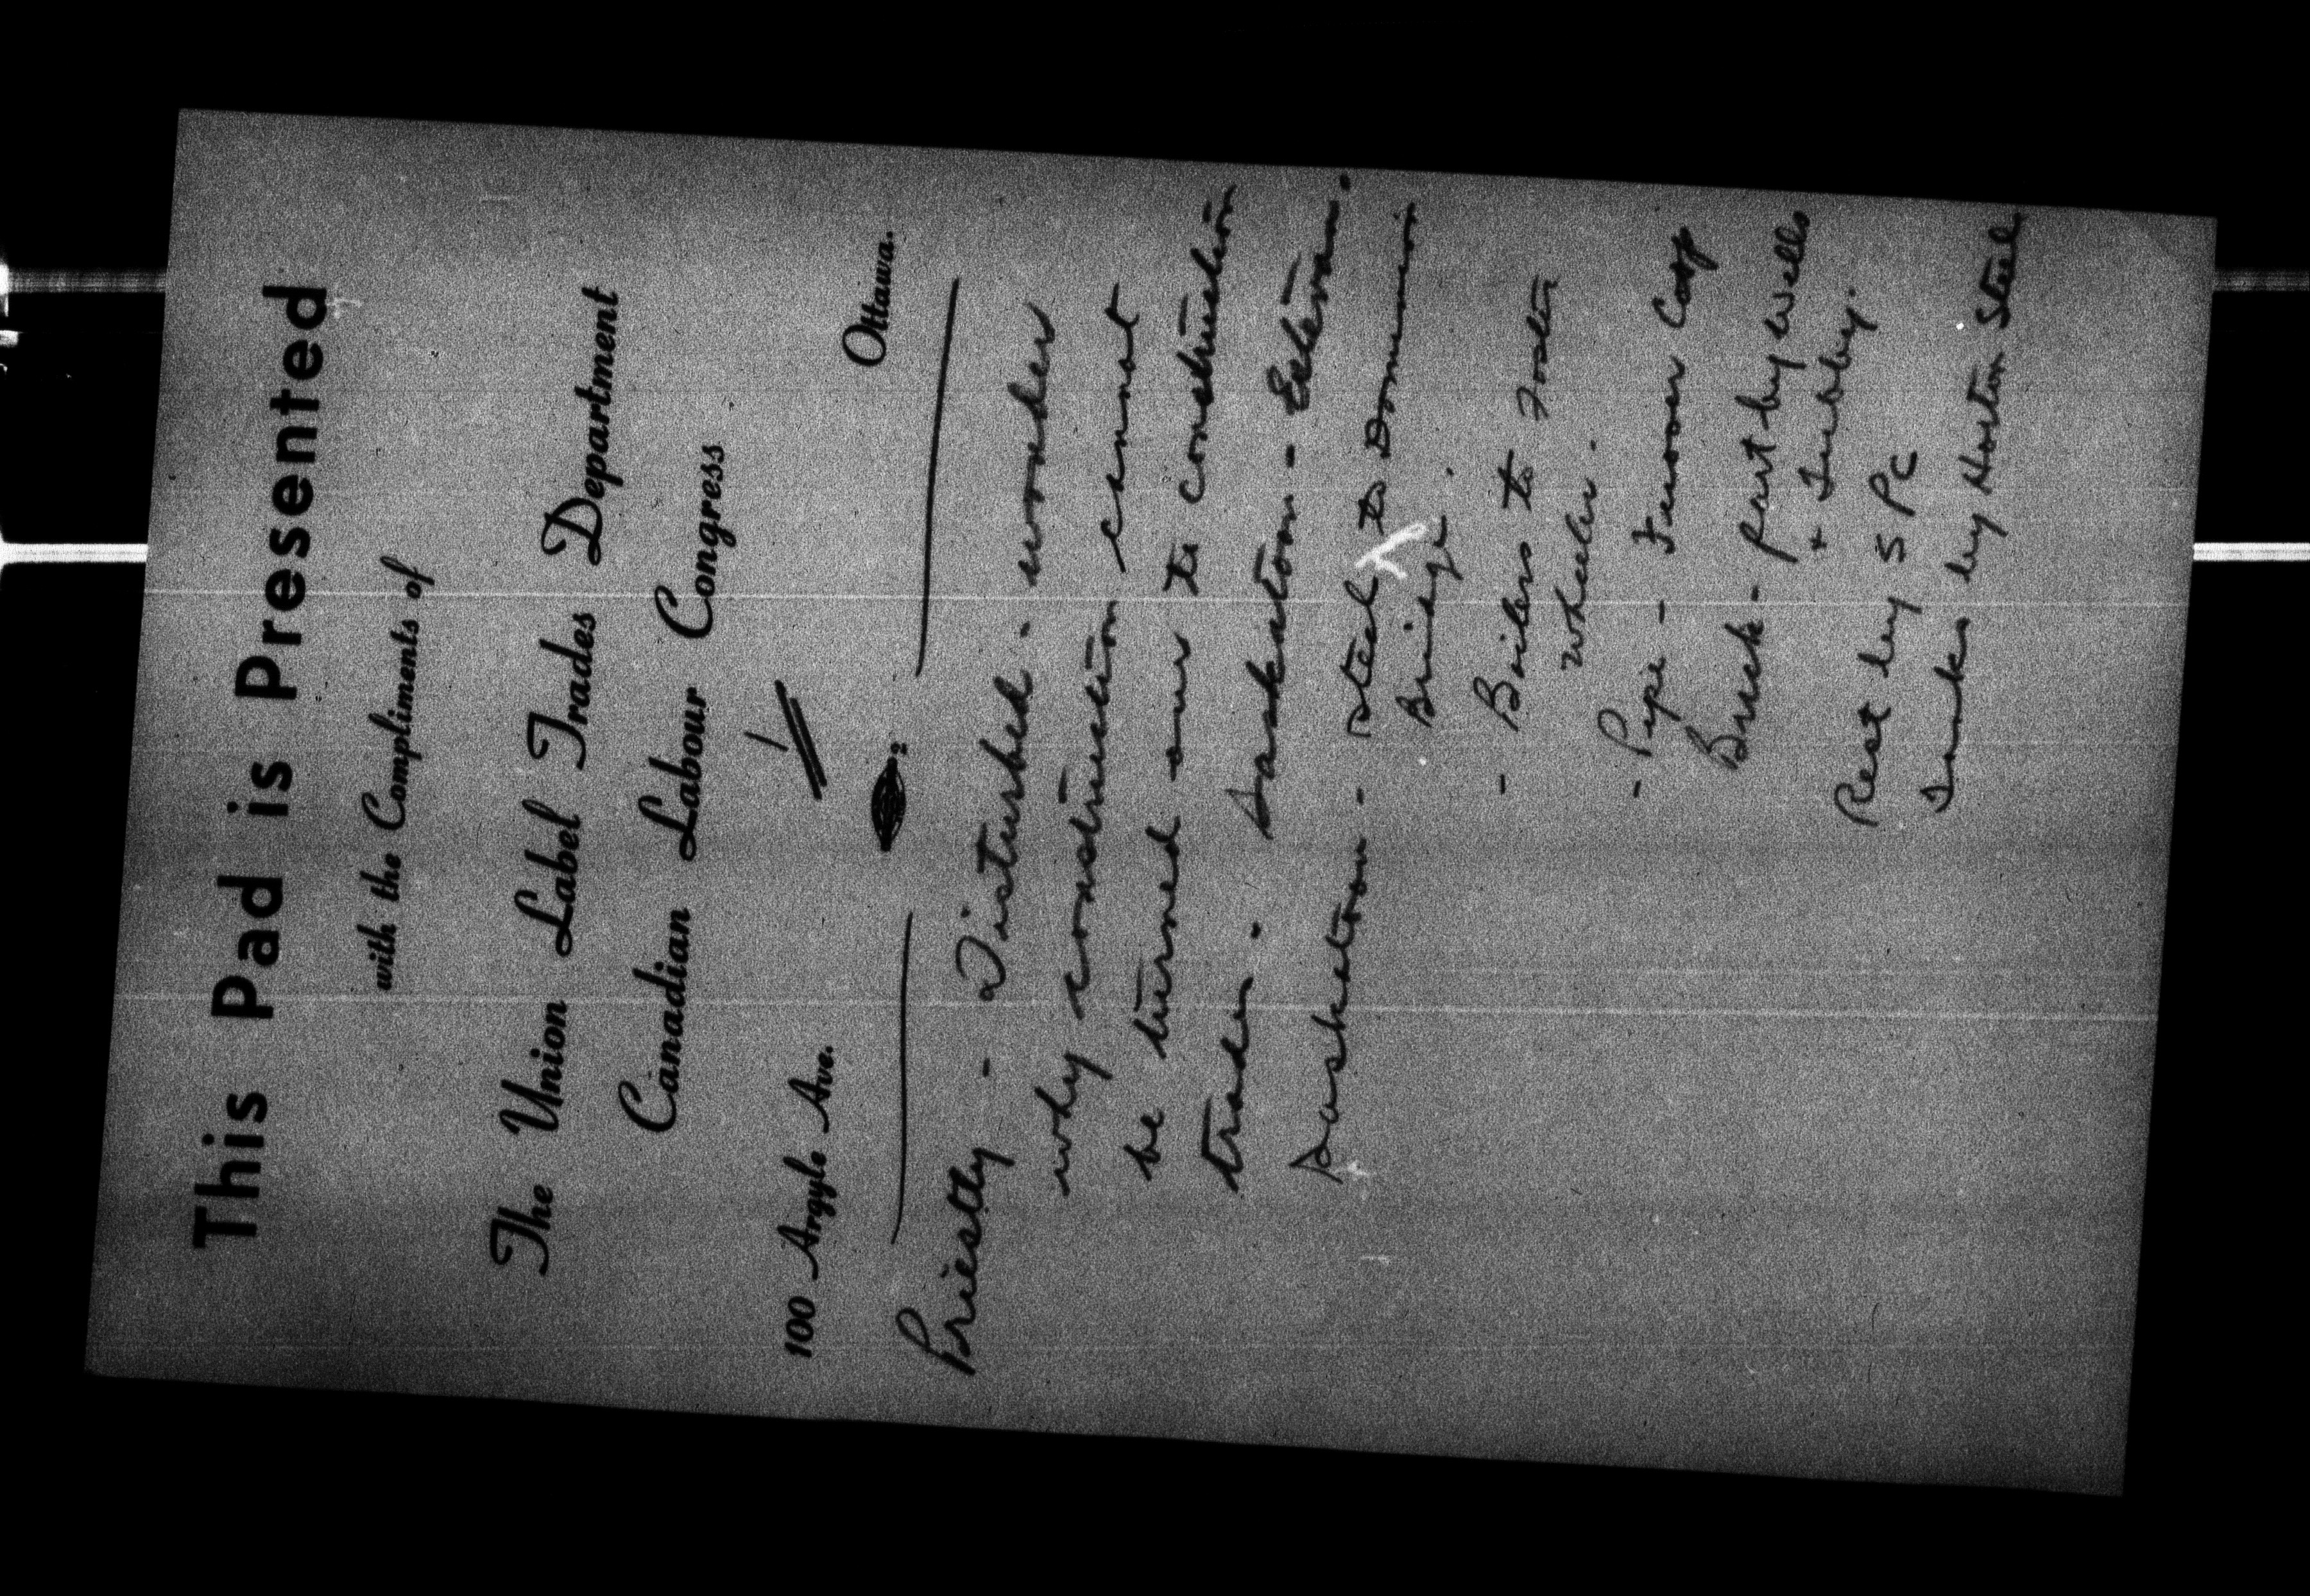 This Pad is Presented
with the Compliments of
The Union Label Trades Department
Canadian Labour Congress
1
100 Argyle Ave. Ottawa.
2
Priestly - Disturbed. wonder
why construction cannot
be turned over to construction
trades. Saskatoon - Estevan.
Saskatoon - steel to Dominion
Bridge.
- Boilers to Foster
Wheeler.
- Pipe - Corp
Brick - part by Wells
+
Rest by S P C
Tanks by Horton Steel